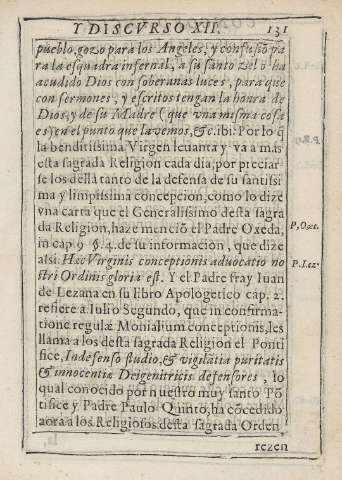 Y DISCVRSO XII. 131
pueblo, gozo para los Angeles, y confusiõ pa
ra la esquadra infernal, a su santo zelo ha
acudido Dios con soberanas luces, para que
con sermones, y escritos tengan la honra de
Dios, y de su Madre (que vna misma cosa
es) en el punto que la vemos, &c. ibi: Por lo q̃
la benditissima Virgen leuanta y va a mas
esta sagrada Religion cada dia, por preciar
se los della tanto de la defensa de su santissi
ma y limpissima concepcion, como lo dize
vna carta que el Generalissimo desta sagra
da Religion, haze menciõ el Padre Oxeda,
in cap 9 §. 4. de su informacion, que dize
alsi: Hæc Virginis conceptionis aduocatio no
stri Ordinis gloria est. Y el Padre fray Iuan
de Lezana en su libro Apologetico cap. 2.
refiere a Iulio Segundo, que in confirma-
tione regulæ Monialium conceptionis, les
llama a los desta sagrada Religion el Ponti
fice, Indefenso studio, & vigilãtia puritatis
& innocentiæ Deigenitricis defensores, lo
qual conocido por nuestro muy santo Põ
tifice y Padre Paulo Quinto, ha cõcedido
aora a los Religiosos desta sagrada Orden
rezen
P, Oxe.
P. Lez.